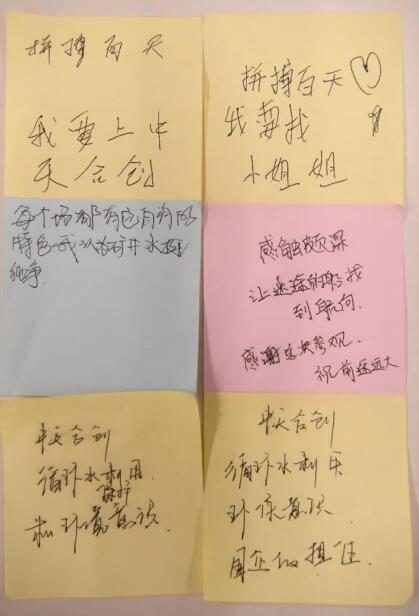 拼搏百天
我要上中
天合创
拼搏百天♡
我要找
小姐姐
每个场都有它自有的
特色我认为矿井水最
纯净.
感触颇深
让迷途的船找
到航向.
感谢这次参观.
祝前途远大
中天合创
循环水利用
保护
和环境意识.
中天合创
循环水利用
环保意识.
国企的担任.